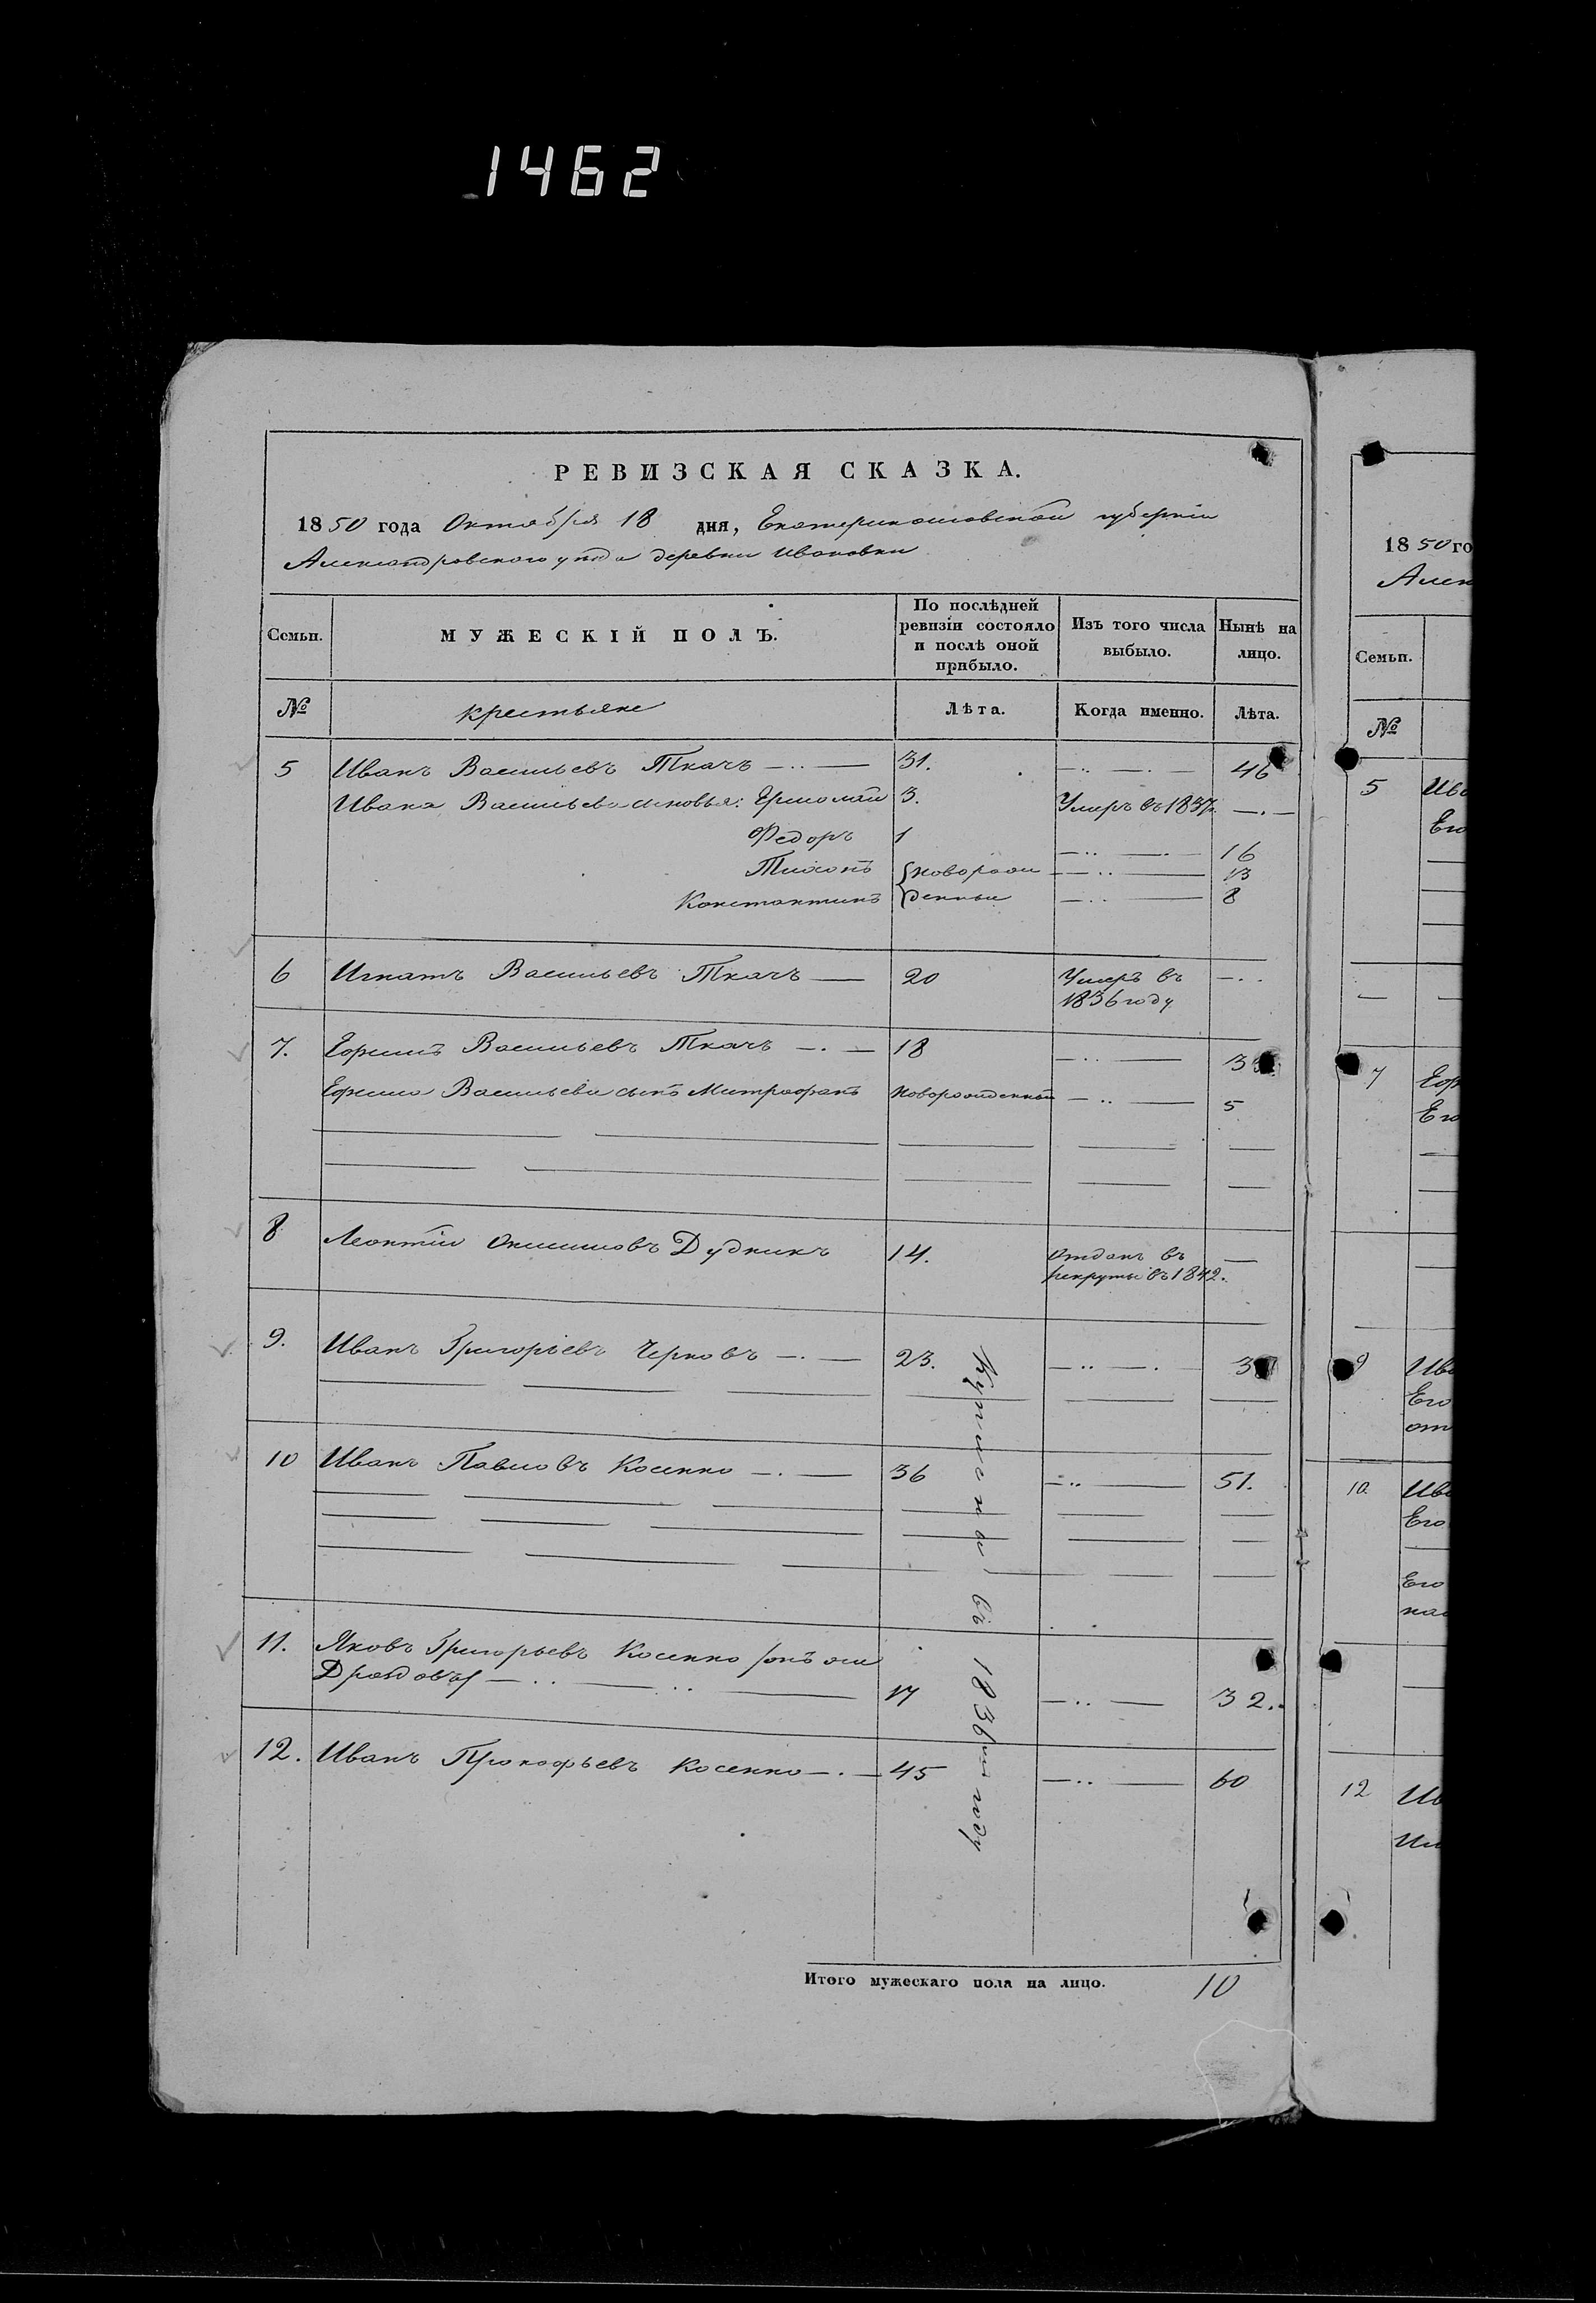 1462
РЕВИЗСКАЯ СКАЗКА.
1850 года Октября 18 дня, Екатеринославской губернии
Александровского уезда деревни Ивановки
Семьи. МУЖЕСКІЙ ПОЛЪ. По послѣдней ревизіи состояло и послѣ оной прибыло. Изъ того числа выбыло. Нынѣ на лицо.
№ крестьяне Лѣта. Когда именно. Лѣта.
5 Иванъ Васильевъ Ткачъ 31. 46
Ивана Васильева сыновья: Ермолай 3. Умеръ въ 1837г. —
Федоръ 1 16
Тихонъ новорож 13
Константинъ денные 8
6 Игнатъ Васильевъ Ткачъ 20 Умеръ въ
1836 году
7. Ефимъ Васильевъ Ткачъ 18 33
Ефима Васильева сынъ Митрофанъ новорожденный 5
8 Леонтій Онисимовъ Дудникъ 14. отданъ въ
рекруты въ 1842.
9. Иванъ Григорьевъ Черновъ 23. 38
10 Иванъ Павловъ Косенко 36 51.
11. Яковъ Григорьевъ Косенко /онъ же
Дроздовъ/ 17 32.
12. Иванъ Прокофьевъ Косенко 45 60
Купленные въ 1836мъ году
Итого мужескаго пола на лицо. 10
1850 го
Алек
Семьи.
№
5 Ива
Его
7 Еф
Его
9 Ива
Его
от
10. Ива
Его
Его
12 Ив